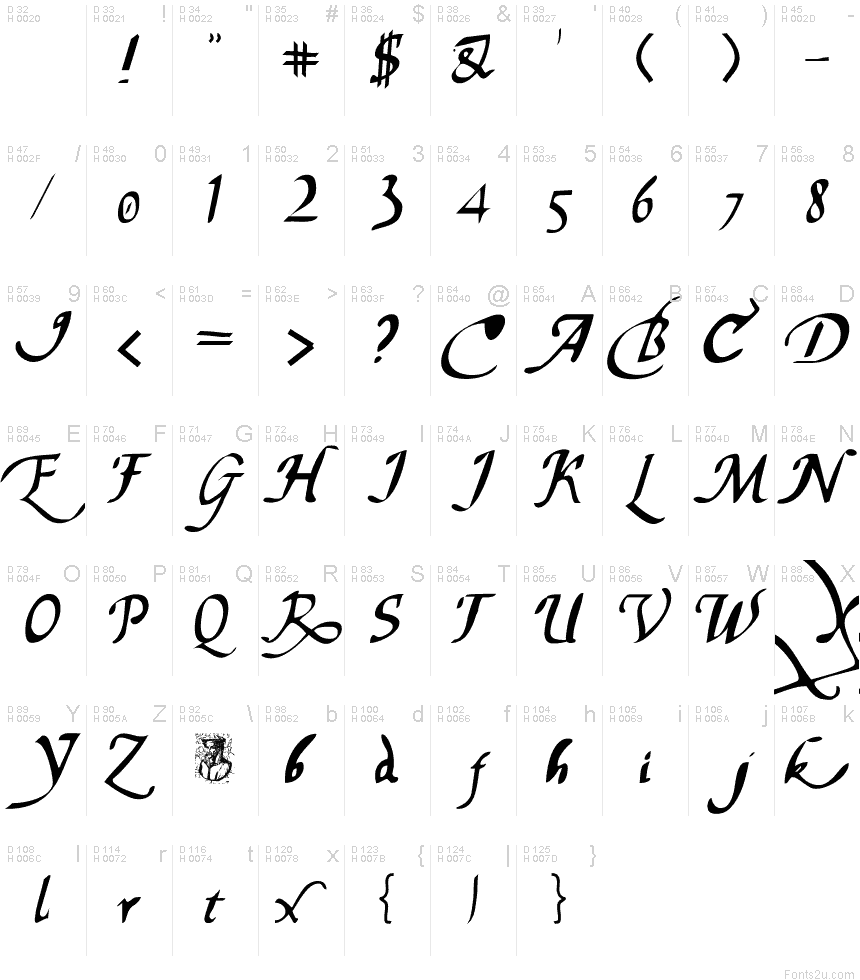 D 32 H 0020 D 33 H 0021 ! D 34 H 0022 " D 35 H 0023 # D 36 H 0024 $ D 38 H 0026 & D 39 H 0027 ' D 40 H 0028 ( D 41 H 0029 ) D 45 H 002D -
! " # $ & ' ( ) -
D 47 H 002F / D 48 H 0030 0 D 49 H 0031 1 D 50 H 0032 2 D 51 H 0033 3 D 52 H 0034 4 D 53 H 0035 5 D 54 H 0036 6 D 55 H 0037 7 D 56 H 0038 8
/ 0 1 2 3 4 5 6 7 8
D 57 H 0039 9 D 60 H 003C < D 61 H 003D = D 62 H 003E > D 63 H 003F ? D 64 H 0040 @ D 65 H 0041 A D 66 H 0042 B D 67 H 0043 C D 68 H 0044 D
9 < = > ? C A B C D
D 69 H 0045 E D 70 H 0046 F D 71 H 0047 G D 72 H 0048 H D 73 H 0049 I D 74 H 004A J D 75 H 004B K D 76 H 004C L D 77 H 004D M D 78 H 004E N
E F G H I J K L M N
D 79 H 004F O D 80 H 0050 P D 81 H 0051 Q D 82 H 0052 R D 83 H 0053 S D 84 H 0054 T D 85 H 0055 U D 86 H 0056 V D 87 H 0057 W D 88 H 0058 X
O P Q R S T U V W X
D 89 H 0059 Y D 90 H 005A Z D 92 H 005C \ D 98 H 0062 b D 100 H 0064 d D 102 H 0066 f D 104 H 0068 h D 105 H 0069 i D 106 H 006A j D 107 H 006B k
Y Z b d f h i j k
D 108 H 006C l D 114 H 0072 r D 116 H 0074 t D 120 H 0078 x D 123 H 007B { D 124 H 007C | D 125 H 007D }
l r t x { | }
Fonts2u.com